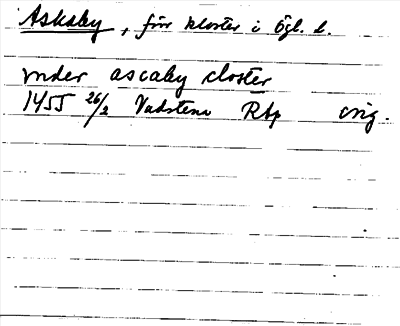 Askaby, för kloster i Ögl. l.
vnder ascaby closter
1455 26/2 Vadstena Rbp orig.